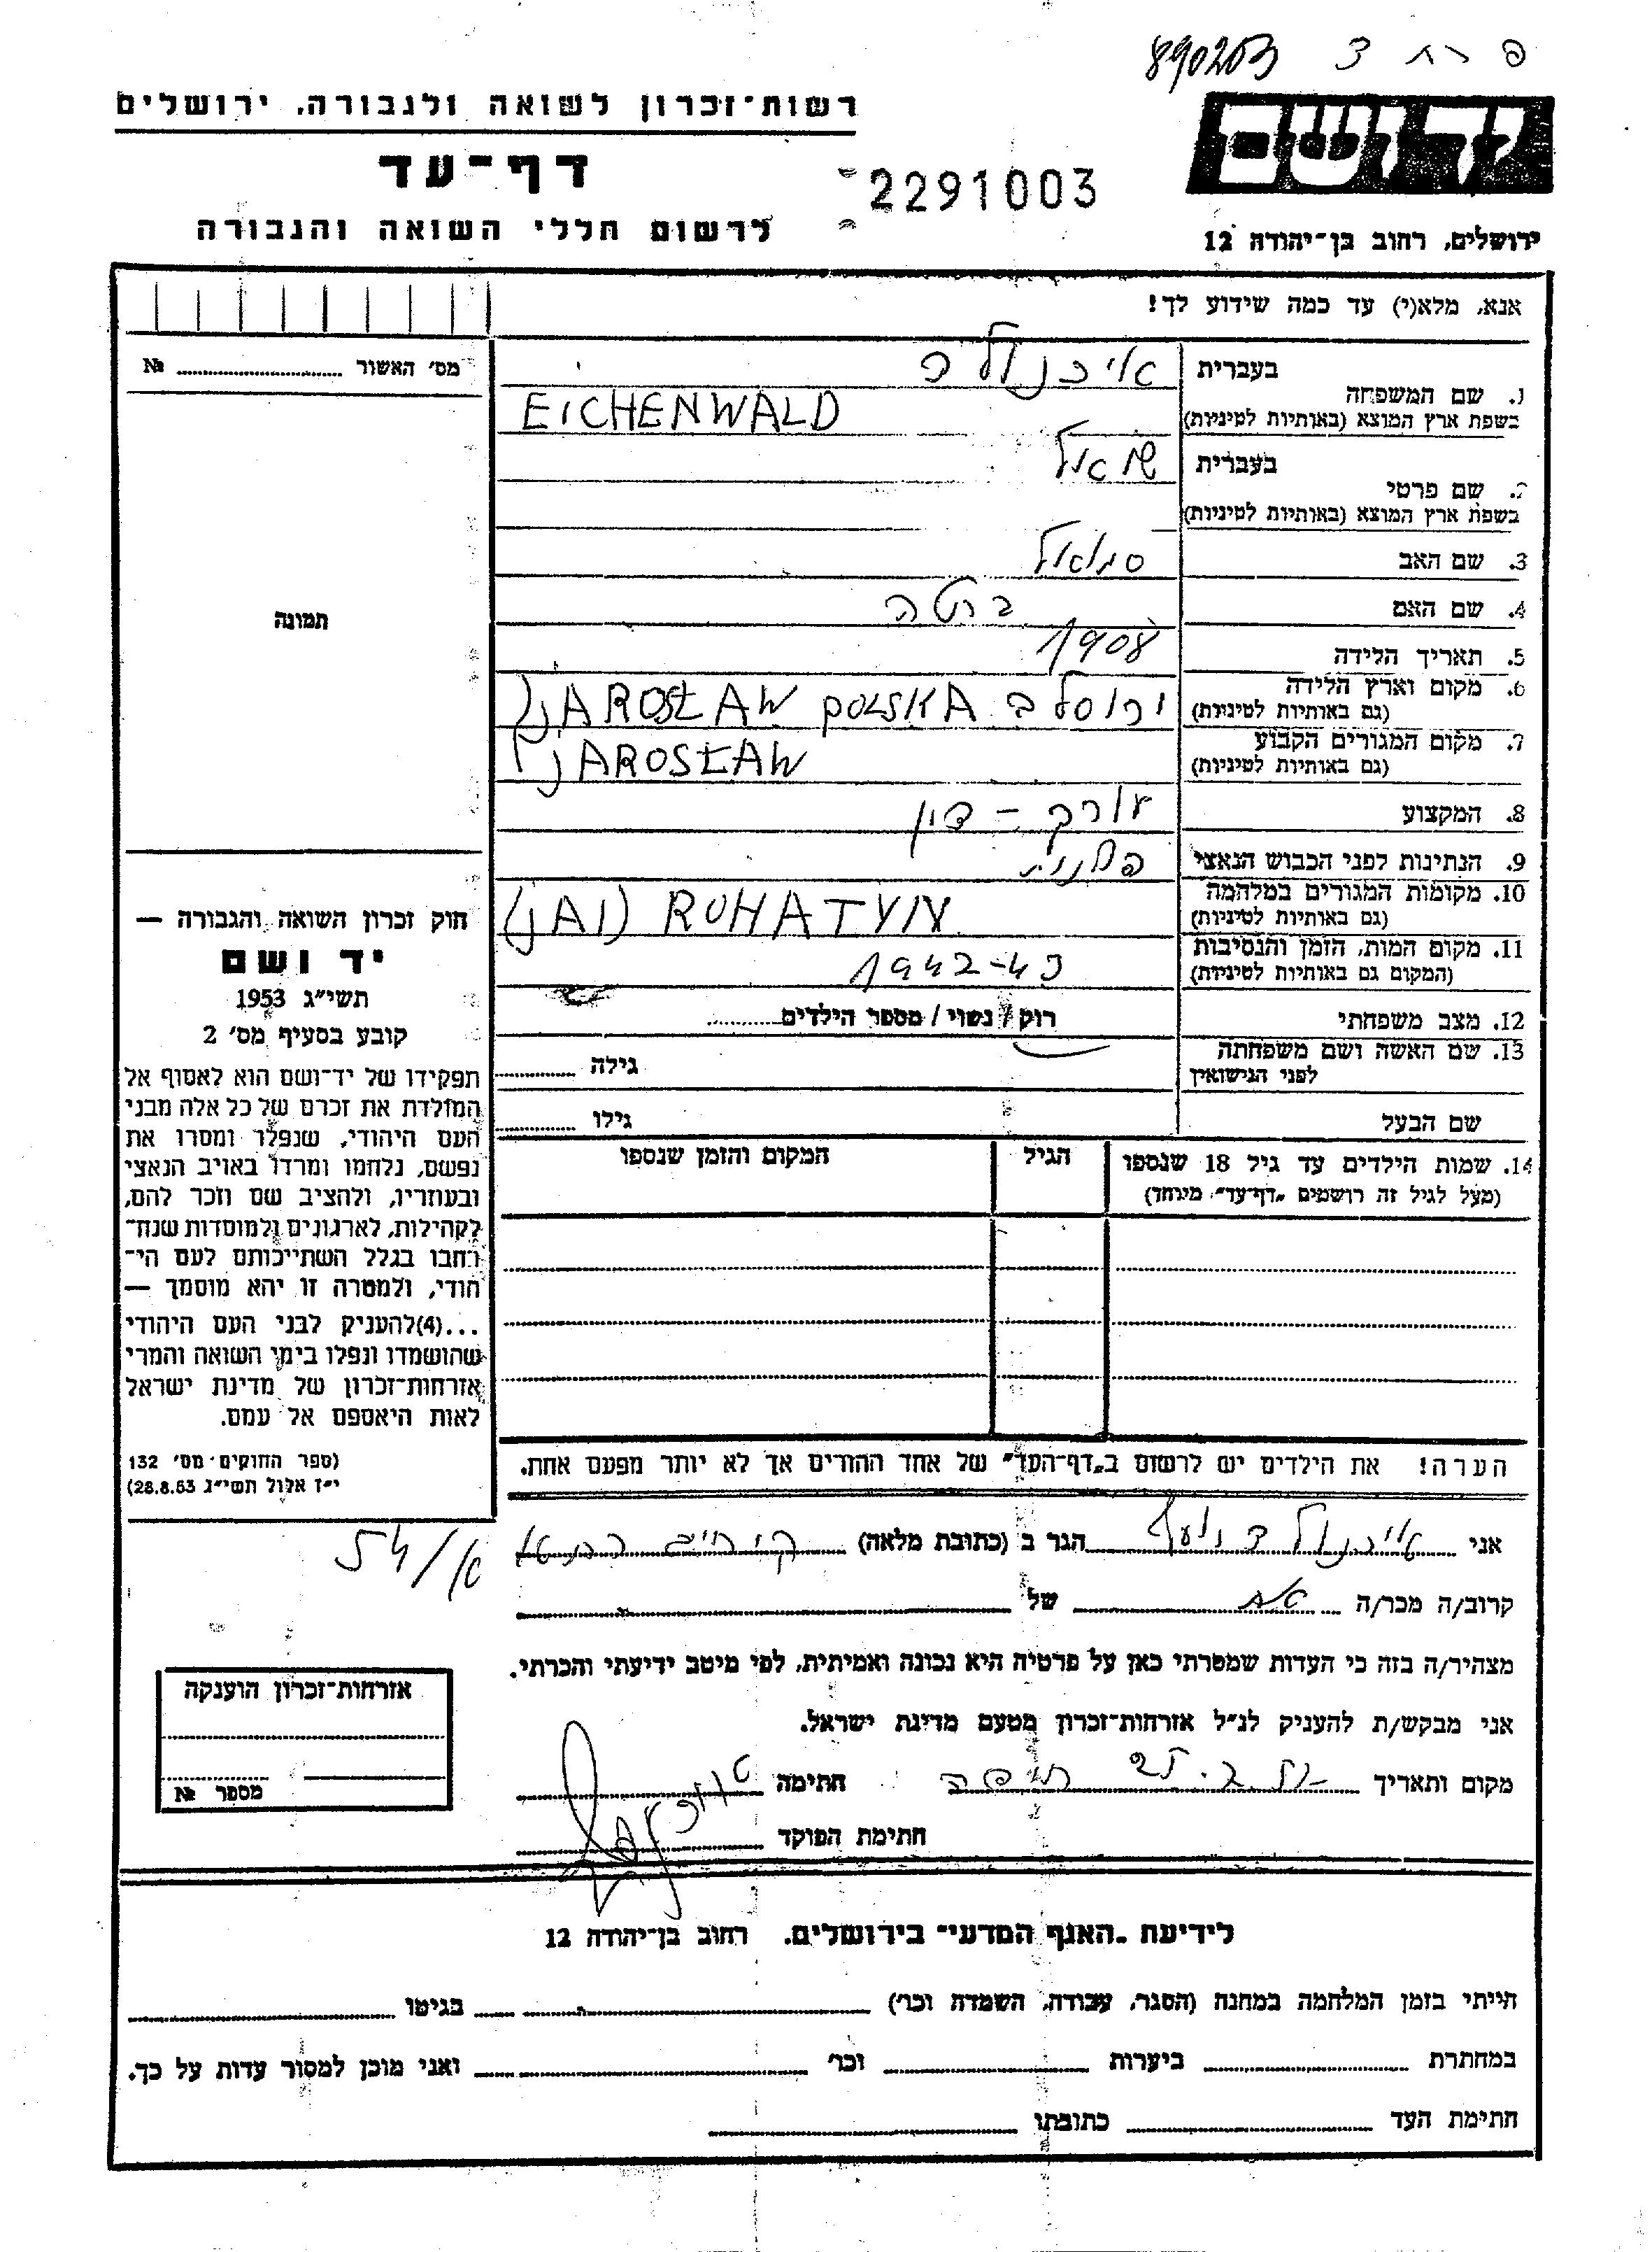 890203
רשות־זכרון לשואה ולגבורה, ירושלים
דף־עד
2291003
לרשום חללי השואה והגבורה
ירושלים, רחוב בן־יהודה 12
אנא, מלא(י) עד כמה שידוע לך!
מס׳ האשור № 
1. שם המשפחה
בעברית
EICHENWALD
בשפת ארץ המוצא (באותיות לטיניות)
2. שם פרטי
בעברית
בשפת ארץ המוצא (באותיות לטיניות)
3. שם האב
4. שם האם ברטה
5. תאריך הלידה 1908
6. מקום וארץ הלידה
(גם באותיות לטיניות)
jAROSŁAW POLSKA
7. מקום המגורים הקבוע
(גם באותיות לטיניות)
jAROSŁAW
8. המקצוע עורך - דין
9. הנתינות לפני הכבוש הנאצי
10. מקומות המגורים במלחמה
(גם באותיות לטיניות)
ROHATYN
11. מקום המות, הזמן והנסיבות
(המקום גם באותיות לטיניות)
1942-43
12. מצב משפחתי רוק / נשוי / מספר הילדים
13. שם האשה ושם משפחתה
לפני הנישואין
גילה
שם הבעל גילו
14. שמות הילדים עד גיל 18 שנספו הגיל המקום והזמן שנספו
(מעל לגיל זה רושמים „דף־עד״ מיוחד)
הערה! את הילדים יש לרשום ב„דף־העד״ של אחד ההורים אך לא יותר מפעם אחת.
תמונה
חוק זכרון השואה והגבורה —
יד ושם
תשי״ג 1953
קובע בסעיף מס׳ 2
תפקידו של יד־ושם הוא לאסוף אל
המולדת את זכרם של כל אלה מבני
העם היהודי, שנפלו ומסרו את
נפשם, נלחמו ומרדו באויב הנאצי
ובעוזריו, ולהציב שם וזכר להם,
לקהילות, לארגונים ולמוסדות שנח־
רחבו בגלל השתייכותם לעם הי־
הודי, ולמטרה זו יהא מוסמך —
...(4)להעניק לבני העם היהודי
שהושמדו ונפלו בימי השואה והמרי
אזרחות־זכרון של מדינת ישראל
לאות היאספם אל עמם.
(ספר החוקים מס׳ 132
י״ז אלול תשי״ג 28.8.53)
אני הגר ב (כתובת מלאה)
קרוב/ה מכר/ה של
מצהיר/ה בזה כי העדות שמסרתי כאן על פרטיה היא נכונה ואמיתית, לפי מיטב ידיעתי והכרתי.
אני מבקש/ת להעניק לנ״ל אזרחות־זכרון מטעם מדינת ישראל.
מקום ותאריך חתימה
חתימת הפוקד
אזרחות־זכרון הוענקה
מספר №
לידיעת „האגף המדעי״ בירושלים. רחוב בן־יהודה 12
הייתי בזמן המלחמה במחנה (הסגר, עבודה, השמדה וכו׳) בגיטו
במחתרת ביערות וכו׳ ואני מוכן למסור עדות על כך.
חתימת העד כתובתו